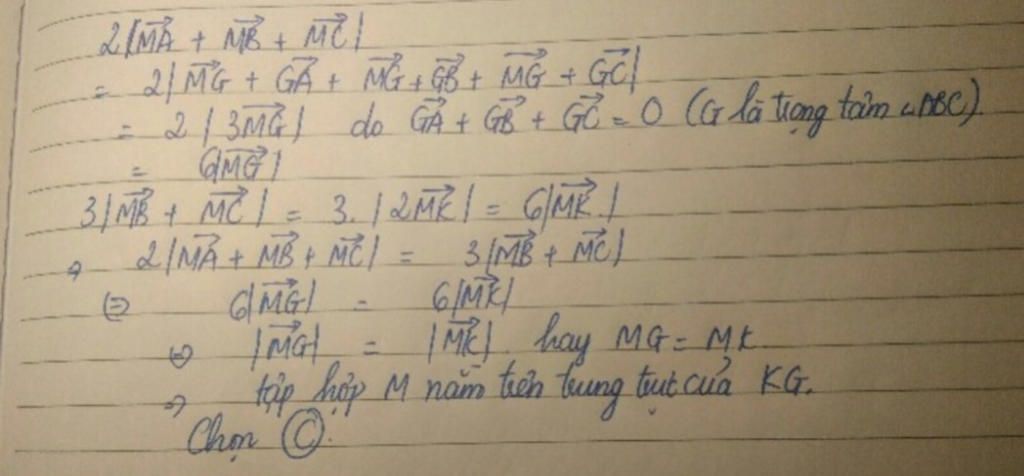 2|MA⃗ + MB⃗ + MC⃗|
= 2|MG⃗ + GA⃗ + MG⃗ + GB⃗ + MG⃗ + GC⃗|
= 2|3MG⃗| do GA⃗ + GB⃗ + GC⃗ = 0 (G là trọng tâm △ABC)
= 6|MG⃗|
3|MB⃗ + MC⃗| = 3.|2MK⃗| = 6|MK⃗.|
→ 2|MA⃗ + MB⃗ + MC⃗| = 3|MB⃗ + MC⃗|
⇔ 6|MG⃗| = 6|MK⃗|
⇔ |MG⃗| = |MK⃗|. hay MG = MK.
⇒ tập hợp M nằm trên trung trực của KG.
Chọn Ⓒ.